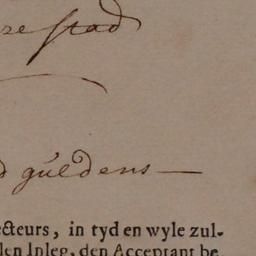 re stad
d guldens —
ecteurs, in tyd en wyle zul-
len Inleg, den Acceptant be